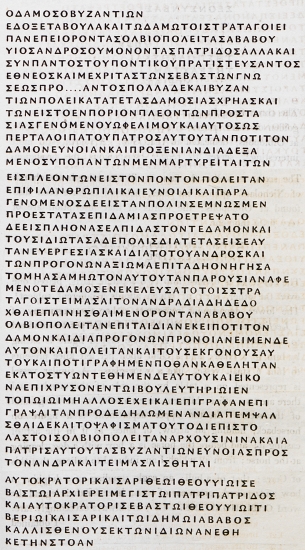 ΟΔΑΜΟΣΟΒΥΖΑΝΤΙΩΝ
ΕΔΟΞΕΤΑΒΟΥΛΑΚΑΙΤΩΔΑΜΩΤΟΙΣΤΡΑΤΑΓΟΙΕΙ
ΠΑΝΕΠΕΙΟΡΟΝΤΑΣΟΛΒΙΟΠΟΛΕΙΤΑΣΑΒΑΒΟΥ
ΥΙΟΣΑΝΔΡΟΣΟΥΜΟΝΟΝΤΑΣΠΑΤΡΙΔΟΣΑΛΛΑΚΑΙ
ΣΥΝΠΑΝΤΟΣΤΟΥΠΟΝΤΙΚΟΥΠΡΑΤΙΣΤΕΥΣΑΝΤΟΣ
ΕΘΝΕΟΣΚΑΙΜΕΧΡΙΤΑΣΤΩΝΣΕΒΑΣΤΩΝΓΝΩ
ΣΕΩΣΠΡΟ....ΑΝΤΟΣΠΟΛΛΑΔΕΚΑΙΒΥΖΑΝ
ΤΙΩΝΠΟΛΕΙΚΑΤΑΤΕΤΑΣΔΑΜΟΣΙΑΣΧΡΗΑΣΚΑΙ
ΤΩΝΕΙΣΤΟΕΝΠΟΡΙΟΝΠΛΕΟΝΤΩΝΠΡΟΣΤΑ
ΣΙΑΣΓΕΝΟΜΕΝΟΥΩΦΕΛΙΜΟΥΚΑΙΑΥΤΟΣΩΣ
ΠΕΡΤΑΛΟΙΠΑΤΟΥΠΑΤΡΟΣΑΥΤΟΥΤΑΝΠΟΤΙΤΟΝ
ΔΑΜΟΝΕΥΝΟΙΑΝΚΑΙΠΡΟΞΕΝΙΑΝΔΙΑΔΕΞΑ
ΜΕΝΟΣΥΠΟΠΑΝΤΩΝΜΕΝΜΑΡΤΥΡΕΙΤΑΙΤΩΝ
ΕΙΣΠΛΕΟΝΤΩΝΕΙΣΤΟΝΠΟΝΤΟΝΠΟΛΕΙΤΑΝ
ΕΠΙΦΙΛΑΝΘΡΩΠΙΑΙΚΑΙΕΥΝΟΙΑΙΚΑΙΠΑΡΑ
ΓΕΝΟΜΕΝΟΣΔΕΕΙΣΤΑΝΠΟΛΙΝΣΕΜΝΩΣΜΕΝ
ΠΡΟΕΣΤΑΤΑΣΕΠΙΔΑΜΙΑΣΠΡΟΕΤΡΕΨΑΤΟ
ΔΕΕΙΣΠΛΗΟΝΑΣΕΛΠΙΔΑΣΤΟΝΤΕΔΑΜΟΝΚΑΙ
ΤΟΥΣΙΔΙΩΤΑΣΑΔΕΠΟΛΙΣΔΙΑΤΕΤΑΣΕΙΣΕΑΥ
ΤΑΝΕΥΕΡΓΕΣΙΑΣΚΑΙΔΙΑΤΟΤΟΥΑΝΔΡΟΣΚΑΙ
ΤΩΝΠΡΟΓΟΝΩΝΑΞΙΩΜΑΕΠΙΤΑΔΗΟΝΗΓΗΣΑ
ΤΟΜΗΑΣΑΜΗΩΤΟΝΑΥΤΟΥΤΑΝΠΑΡΟΥΣΙΑΝΑΦΕ
ΜΕΝΟΤΕΔΑΜΟΣΕΝΕΚΕΛΕΥΣΑΤΟΤΟΙΣΣΤΡΑ
ΤΑΓΟΙΣΤΕΙΜΑΣΛΙΤΟΝΑΝΔΡΑΔΙΑΔΗΔΕΔΟ
ΧΘΑΙΕΠΑΙΝΗΣΘΑΙΜΕΝΟΡΟΝΤΑΝΑΒΑΒΟΥ
ΟΛΒΙΟΠΟΛΕΙΤΑΝΕΠΙΤΑΙΔΙΑΝΕΚΕΙΠΟΤΙΤΟΝ
ΔΑΜΟΝΚΑΙΔΙΑΠΡΟΓΟΝΩΝΠΡΟΝΟΙΑΙΝΕΙΜΕΝΔΕ
ΑΥΤΟΝΚΑΙΠΟΛΕΙΤΑΝΚΑΙΤΟΥΣΕΚΓΟΝΟΥΣΑΥ
ΤΟΥΚΑΙΠΟΤΙΓΡΑΦΗΜΕΝΠΟΘΑΝΚΑΘΕΛΗΤΑΝ
ΕΚΑΤΟΣΤΥΩΝΤΕΘΗΜΕΝΔΕΑΥΤΟΥΚΑΙΕΙΚΟ
ΝΑΕΠΙΧΡΥΣΟΝΕΝΤΩΙΒΟΥΛΕΥΤΗΡΙΩΙΕΙΝ
ΤΟΠΩΙΩΙΜΗΑΛΛΟΣΕΧΕΙΚΑΙΕΠΙΓΡΑΦΑΝΕΠΙ
ΓΡΑΨΑΙΤΑΝΠΡΟΔΕΔΗΛΩΜΕΝΑΝΔΙΑΠΕΜΨΑΛ
ΣΘΑΙΔΕΚΑΙΤΟΨΑΦΙΣΜΑΤΟΥΤΟΔΙΕΠΙΣΤΟ
ΛΑΣΤΟΙΣΟΛΒΙΟΠΟΛΕΙΤΑΝΑΡΧΟΥΣΙΝΙΝΑΚΑΙΑ
ΠΑΤΡΙΣΑΥΤΟΥΤΑΣΒΥΖΑΝΤΙΩΝΕΥΝΟΙΑΣΠΡΟΣ
ΤΟΝΑΝΔΡΑΚΑΙΤΕΙΜΑΣΑΙΣΘΗΤΑΙ
ΑΥΤΟΚΡΑΤΟΡΙΚΑΙΣΑΡΙΘΕΩΙΘΕΟΥΥΙΩΙΣΕ
ΒΑΣΤΩΙΑΡΧΙΕΡΕΙΜΕΓΙΣΤΩΙΠΑΤΡΙΠΑΤΡΙΔΟΣ
ΚΑΙΑΥΤΟΚΡΑΤΟΡΙΣΕΒΑΣΤΩΙΘΕΟΥΥΙΩΙΤΙ
ΒΕΡΙΩΙΚΑΙΣΑΡΙΚΑΙΤΩΙΔΗΜΩΙΑΒΑΒΟΣ
ΚΑΛΛΙΣΘΕΝΟΥΣΕΚΤΩΝΙΔΙΩΝΑΝΕΘΗ
ΚΕΤΗΝΣΤΟΑΝ